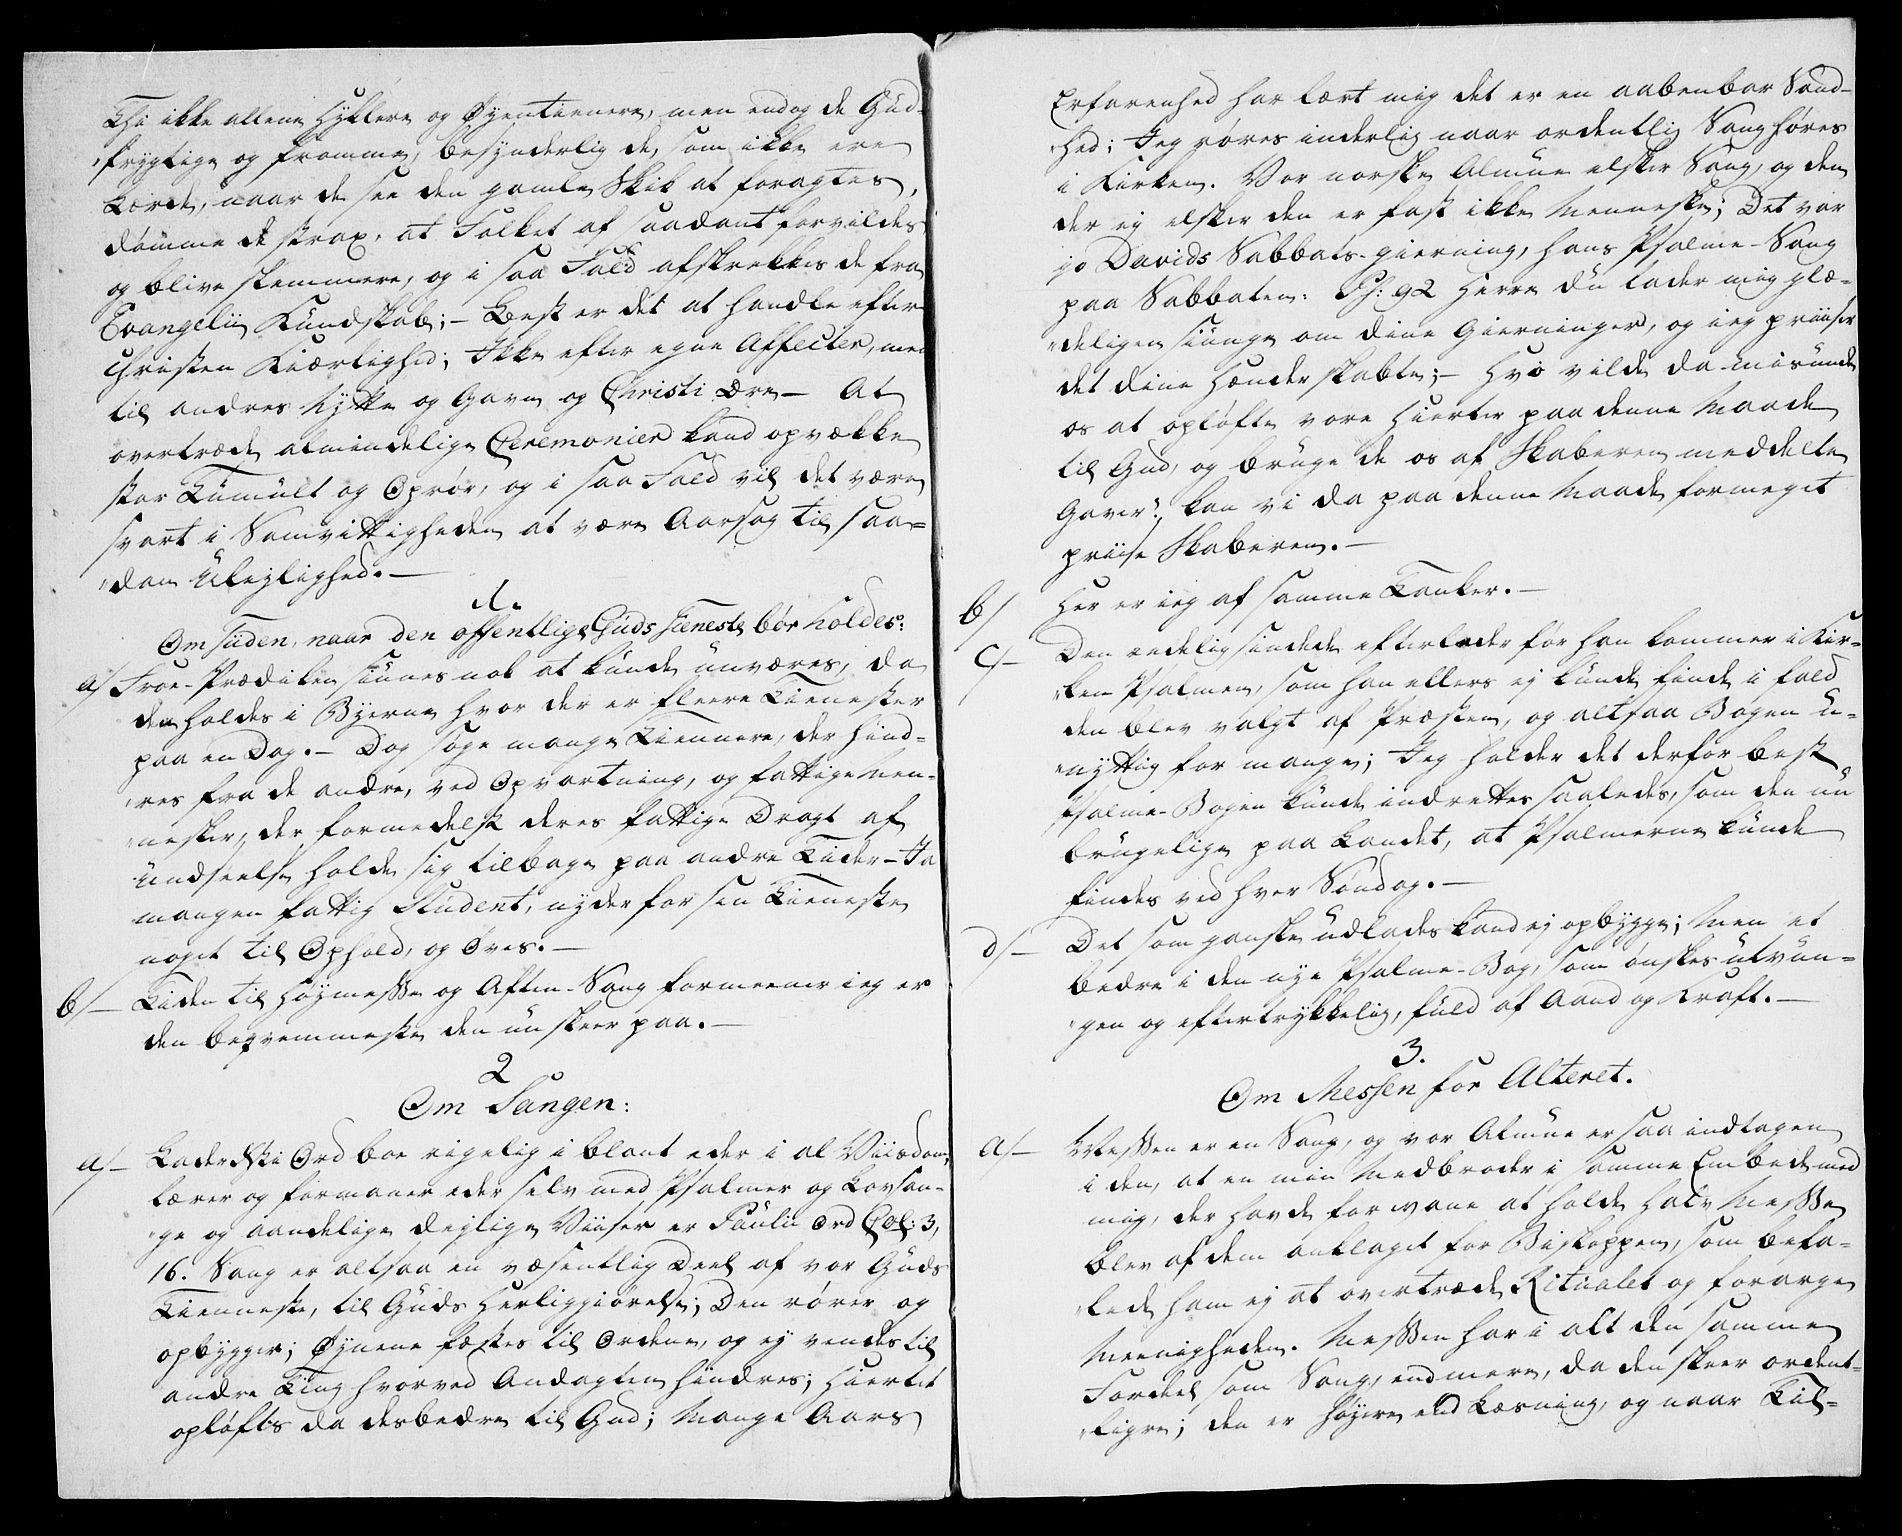 Thi ikke allene Hyklere og Øyentienere, men endog de Gud-
frygtige og fromme, besynderlig de, som ikke ere
Lærde, naar de see den gamle Skik at foragtes,
dømme de strax, at Folket af saadant forvildes
og blive slemmere, og i saa Fald afskrækkes de fra
Evangelii Kundskab; – Best er det at handle efter
Christen Kiærlighed; Ikke efter egne Affecter, men
til andres Nytte og Gavn og Christi Ære – At
overtræde almindelige Ceremonier kand opvække
stor Tumult og Oprør, og i saa Fald vil det være
svart i Samvittigheden at være Aarsag til saa-
dan Uleylighed. –
1.
Om Tiden, naar den offentlige Guds Tieneste bør holdes:
a/ Froe-Prædiken siunes nok at kunde undværes, da
den holdes i Byerne hvor der er fleere Tienester
paa en Dag. – Dog søge mange Tiennere, der hind-
res fra de andre, ved Opvartning, og fattige Men-
nesker, der formedelst deres fattige Dragt af
Undseelse holde sig tilbage paa andre Tider – Ja
mangen fattig Student, nyder for sin Tieneste
noget til Ophold, og Øves. –
b/ – Tiden til Høymesse og Aften-Sang formeener ieg er
den beqvemmeste den nu skeer paa. –
2
Om Sangen:
a/ – Lader Χsti Ord boe rigelig i blant eder i al Viisdom,
lærer og formaner eder selv med Psalmer og Lovsan-
ge og aandelige deylige Viiser er Pauli Ord Col: 3,
16. Sang er altsaa en væsentlig Deel af vor Guds
Tienneste, til Guds Herliggiørelse; Den rører og
opbygger; Øynene fæstes til Ordene, og ey vendes til
andre Ting hvorved Andagten hindres; Hiertet
opløftes da desbedre til Gud; Mange Aars
Erfarenhed har lært mig det er en aabenbar Sand-
hed; Jeg røres inderlig naar ordentlig Sang høres
i Kirken. Vor norske Almue elsker Sang, og den
der ej elsker den er fast ikke Menneske; Det var
jo Davids Sabbats-gierning, hans Psalme-Sang
paa Sabbaten: Ps: 92 Herre du lader mig glæ-
deligen siunge om dine Gierninger, og ieg priiser
det dine Hænder skabte; – Hvo vilde da misunde
os at opløfte vore Hierter paa denne Maade
til Gud, og bruge de os af Skaberen meddelte
Gaver? kan vi da paa denne Maade formeget
priise Skaberen. –
b/ Her er ieg af samme Tanker. –
c/ – Den andeligsindede efterleder før han kommer i Kir-
ken Psalmen, som han ellers ej kunde finde i fald
den blev valgt af Præsten, og altsaa Bogen u-
nyttig for mange; Jeg holder det derfor best
Psalme-Bogen kunde indrettes saaledes, som den nu
brugelige paa Landet, at Psalmerne kunde
findes ved hver Søndag. –
d/ – Det som ganske udlades kand ej opbygge; Men et
bedre i den nye Psalme-Bog, som ønskes utvun-
gen og eftertrykkelig, fuld af Aand og Kraft. –
3.
Om Messen for Alteret.
a/ – Messen er en Sang, og vor Almue er saa indtagen
i den, at en min Medbroder i samme Embede med
mig, der havde for vane at holde halv Messe
blev af dem anklaget for Biskoppen, som befa-
lede ham ej at overtræde Ritualet og forarge
Meenigheden. Messen har i alt den samme
Fordeel som Sang, end mere, da den skeer ordent-
ligere; den er høyere end Læsning, og naar Til-